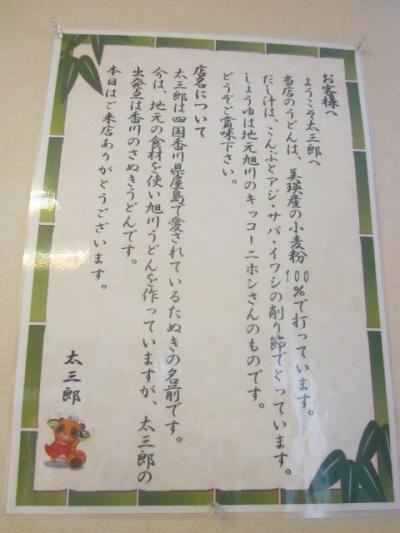 お客様へ
ようこそ太三郎へ
当店のうどんは、美瑛産の小麦粉100%で打っています。
だし汁は、こんぶとアジ・サバ・イワシの削り節でとっています。
しょうゆは地元旭川のキッコーニホンさんのものです。
どうぞご賞味下さい。
店名について
太三郎は四国香川県屋島で愛されているたぬきの名前です。
今は、地元の食材を使い旭川うどんを作っていますが、太三郎の
出発点は香川のさぬきうどんです。
本日はご来店ありがとうございます。
太三郎